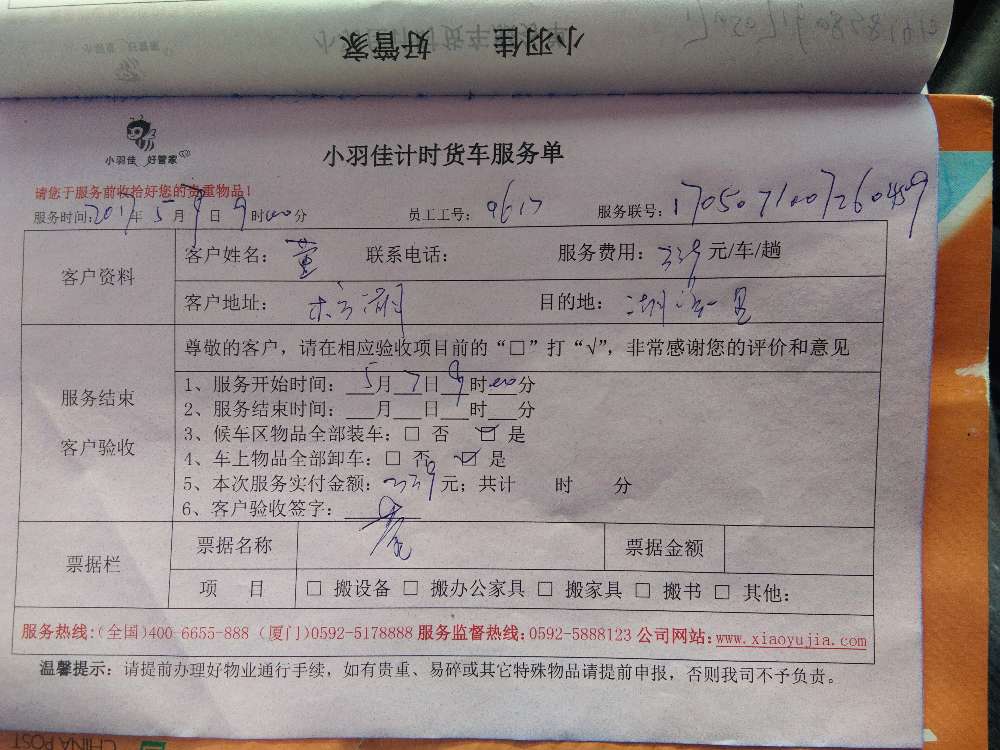 小羽佳 好管家
小羽佳 好管家
小羽佳计时货车服务单
请您于服务前收拾好您的贵重物品！
服务时间:2017年5月7日9时00分 员工工号: 9617 服务联号:
客户资料 客户姓名: 董 联系电话: 服务费用: 239元/车/趟
客户地址: 目的地:
服务结束 客户验收 尊敬的客户，请在相应验收项目前的“□”打“√”，非常感谢您的评价和意见
1、服务开始时间: 5月7日9时00分
2、服务结束时间: ___月___日___时___分
3、候车区物品全部装车: □ 否 ☑ 是
4、车上物品全部卸车: □ 否 ☑ 是
5、本次服务实付金额: 239元；共计 时 分
6、客户验收签字:
票据栏 票据名称 票据金额
项 目 □ 搬设备 □ 搬办公家具 □ 搬家具 □ 搬书 □ 其他:
服务热线:(全国)400-6655-888 (厦门)0592-5178888 服务监督热线:0592-5888123 公司网站:www.xiaoyujia.com
温馨提示: 请提前办理好物业通行手续，如有贵重、易碎或其它特殊物品请提前申报，否则我司不予负责。
CHINA POST